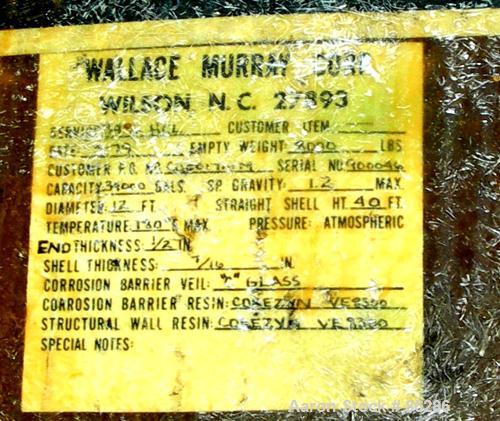 WALLACE MURRAY CORP
WILSON N.C. 27893
SERVICE HCL CUSTOMER ITEM
DATE 2-79 EMPTY WEIGHT LBS
CUSTOMER P.O. NO. SERIAL NO 900046
CAPACITY 34000 GALS. SP. GRAVITY: 1.2 MAX.
DIAMETER: 12 FT. STRAIGHT SHELL HT. 40 FT.
TEMPERATURE °F MAX. PRESSURE: ATMOSPHERIC
END THICKNESS: 1/2 IN.
SHELL THICKNESS: 7/16 IN.
CORROSION BARRIER VEIL: "C" GLASS
CORROSION BARRIER RESIN: COREZYN VE8300
STRUCTURAL WALL RESIN: COREZYN VE8300
SPECIAL NOTES:
Aaron Stock #